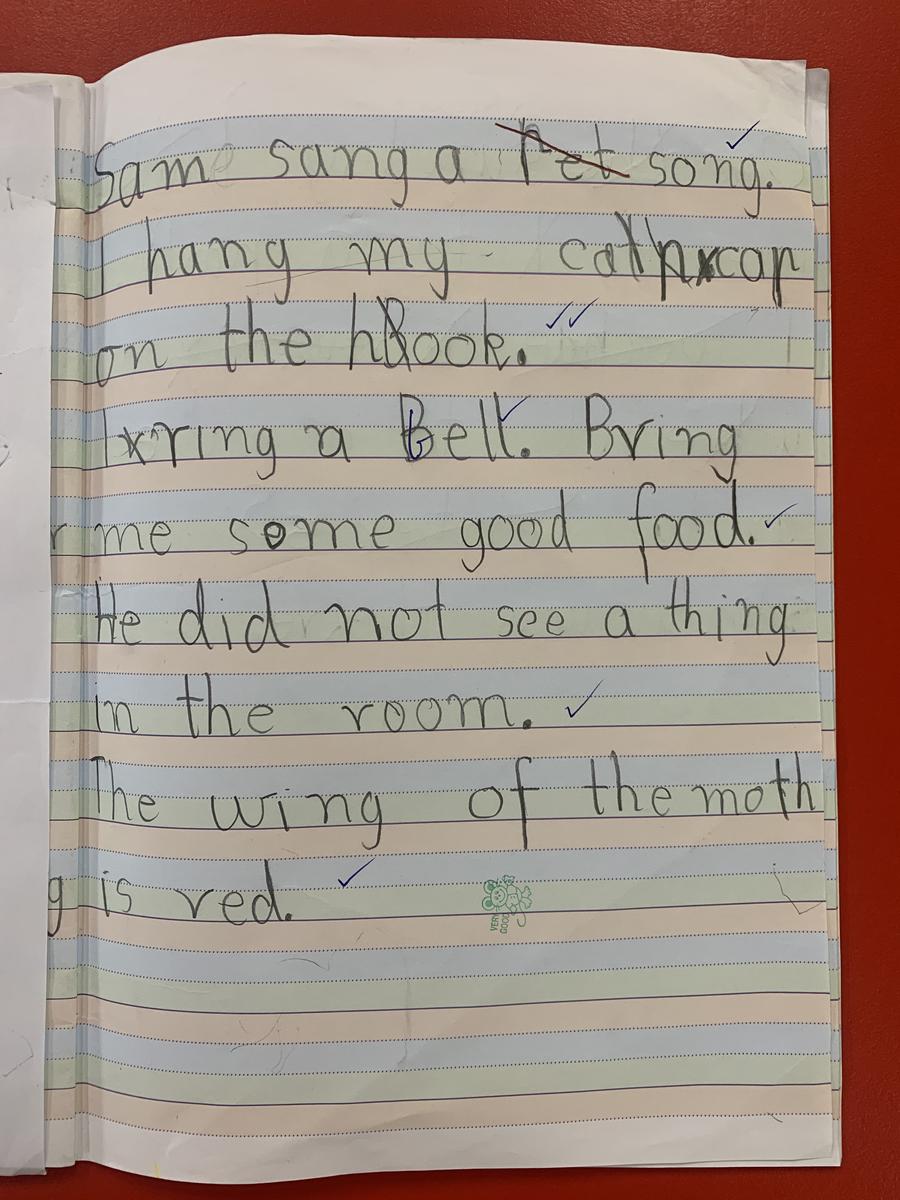 Sam sang a song.
I hang my cap
on the hook.
I ring a Bell. Bring
me some good food.
He did not see a thing
in the room.
The wing of the moth
g is red.
VERY GOOD